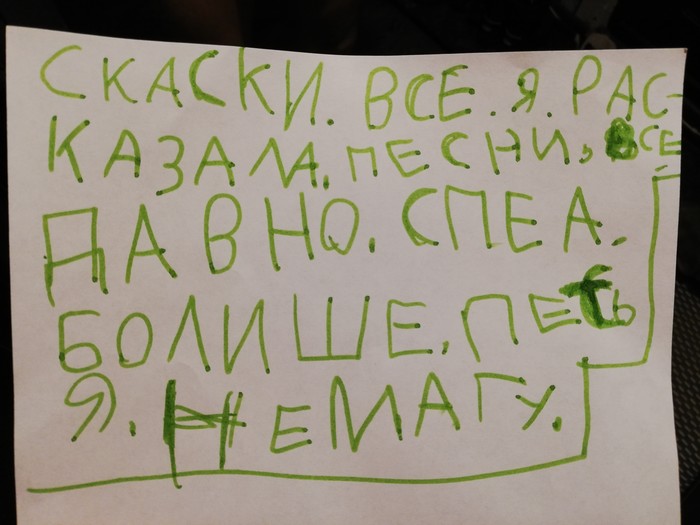 СКАСКИ. ВСЕ. Я. РАС-
КАЗАЛА. ПЕСНИ, ВСЕ
ДАВНО. СПЕЛА.
БОЛИШЕ, ПЕТЬ
Я. НЕМАГУ.